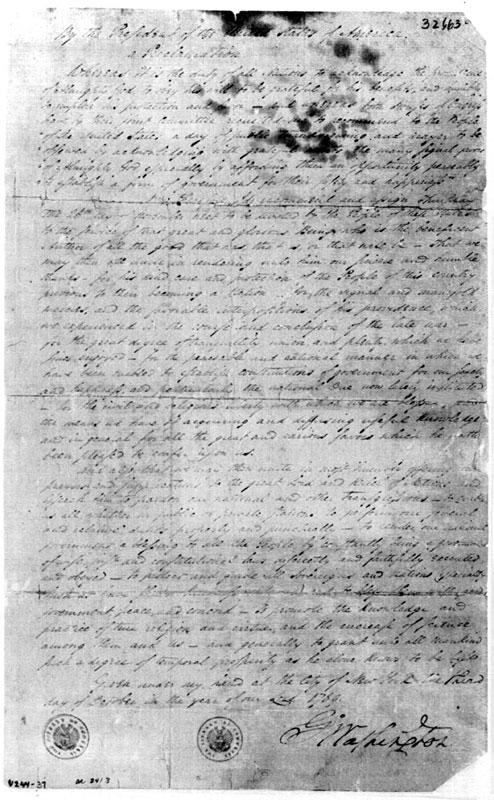 32663
By the President of the United States of America.
a Proclamation.
Whereas it is the duty of all Nations to acknowledge the
of Almighty God, to obey his will, to be grateful for his benefits, and humbly
to implore his protection and favor — and whereas both Houses of Congress
have by their joint Committee requested me to recommend to the People
of the United States a day of public thanksgiving and prayer to be
observed by acknowledging with grateful the many signal favors
of Almighty God especially by affording them an opportunity peaceably
to establish a form of government for their safety and happiness.
I do recommend and assign Thursday
the 26th day of November next to be devoted by the People of these States
to the service of that great and glorious Being, who is the beneficent
Author of all the good that was, that is, or that will be — That we
may then all unite in rendering unto him our sincere and humble
thanks — for his kind care and protection of the People of this country
previous to their becoming a Nation — for the signal and manifold
mercies, and the favorable interpositions of his providence, which
we experienced in the course and conclusion of the late war —
for the great degree of tranquillity, union, and plenty, which we have
since enjoyed — for the peaceable and rational manner in which we
have been enabled to establish constitutions of government for our safety
and happiness, and particularly the national One now lately instituted
— for the civil and religious liberty with which we are blessed
the means we have of acquiring and diffusing useful knowledge
and in general for all the great and various favors which he hath
been pleased to confer upon us.
And also that we may then unite in most humbly offering our
prayers and supplications to the great Lord and Ruler of Nations and
beseech him to pardon our national and other transgressions — to enable
us all, whether in public or private stations, to perform our several
and relative duties properly and punctually — to render our national
government a blessing to all the People, by constantly being a government
of wise, just and constitutional laws, discreetly and faithfully executed
and obeyed — to protect and guide all Sovereigns and Nations (especially
such as have shewn kindness unto us) and to bless them with good
government, peace, and concord — To promote the knowledge and
practice of true religion and virtue, and the encrease of science
among them and us — and generally to grant unto all Mankind
such a degree of temporal prosperity as he alone knows to be best.
Given under my hand at the City of New York the third
day of October in the year of our Lord 1789.
Go Washington
4244-37
ac 2413